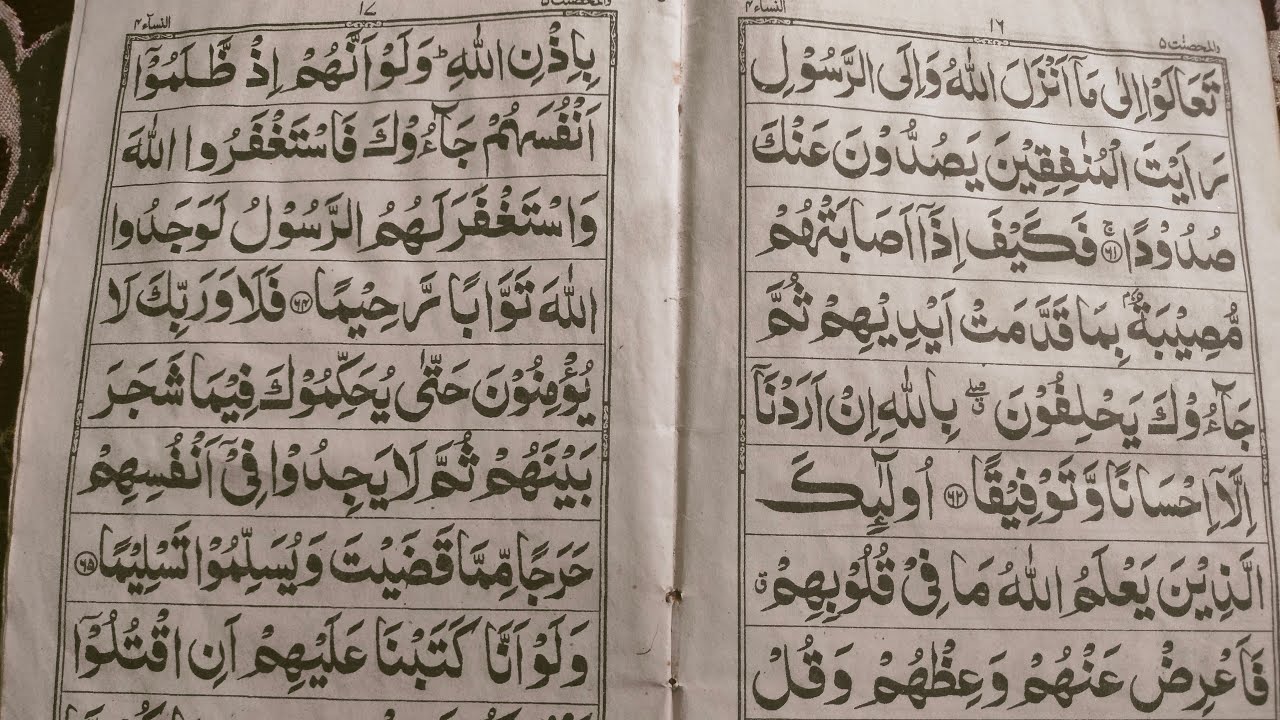 والمحصنت ۵
۱۶
النسآء ۴
تَعَالَوْا اِلٰى مَاۤ اَنْزَلَ اللّٰهُ وَاِلَى الرَّسُوْلِ
رَاَيْتَ الْمُنٰفِقِيْنَ يَصُدُّوْنَ عَنْكَ
صُدُوْدًا ۶۱ فَكَيْفَ اِذَاۤ اَصَابَتْهُمْ
مُّصِيْبَةٌۢ بِمَا قَدَّمَتْ اَيْدِيْهِمْ ثُمَّ
جَآءُوْكَ يَحْلِفُوْنَ ۖۗ بِاللّٰهِ اِنْ اَرَدْنَاۤ
اِلَّاۤ اِحْسَانًا وَّتَوْفِيْقًا ۶۲ اُولٰٓئِكَ
الَّذِيْنَ يَعْلَمُ اللّٰهُ مَا فِيْ قُلُوْبِهِمْ ق
فَاَعْرِضْ عَنْهُمْ وَعِظْهُمْ وَقُلْ
۱۷
النسآء ۴
بِاِذْنِ اللّٰهِ ؕ وَلَوْ اَنَّهُمْ اِذْ ظَّلَمُوْۤا
اَنْفُسَهُمْ جَآءُوْكَ فَاسْتَغْفَرُوا اللّٰهَ
وَاسْتَغْفَرَ لَهُمُ الرَّسُوْلُ لَوَجَدُوا
اللّٰهَ تَوَّابًا رَّحِيْمًا ۶۴ فَلَا وَرَبِّكَ لَا
يُؤْمِنُوْنَ حَتّٰى يُحَكِّمُوْكَ فِيْمَا شَجَرَ
بَيْنَهُمْ ثُمَّ لَا يَجِدُوْا فِيْۤ اَنْفُسِهِمْ
حَرَجًا مِّمَّا قَضَيْتَ وَيُسَلِّمُوْا تَسْلِيْمًا ۶۵
وَلَوْ اَنَّا كَتَبْنَا عَلَيْهِمْ اَنِ اقْتُلُوْۤا